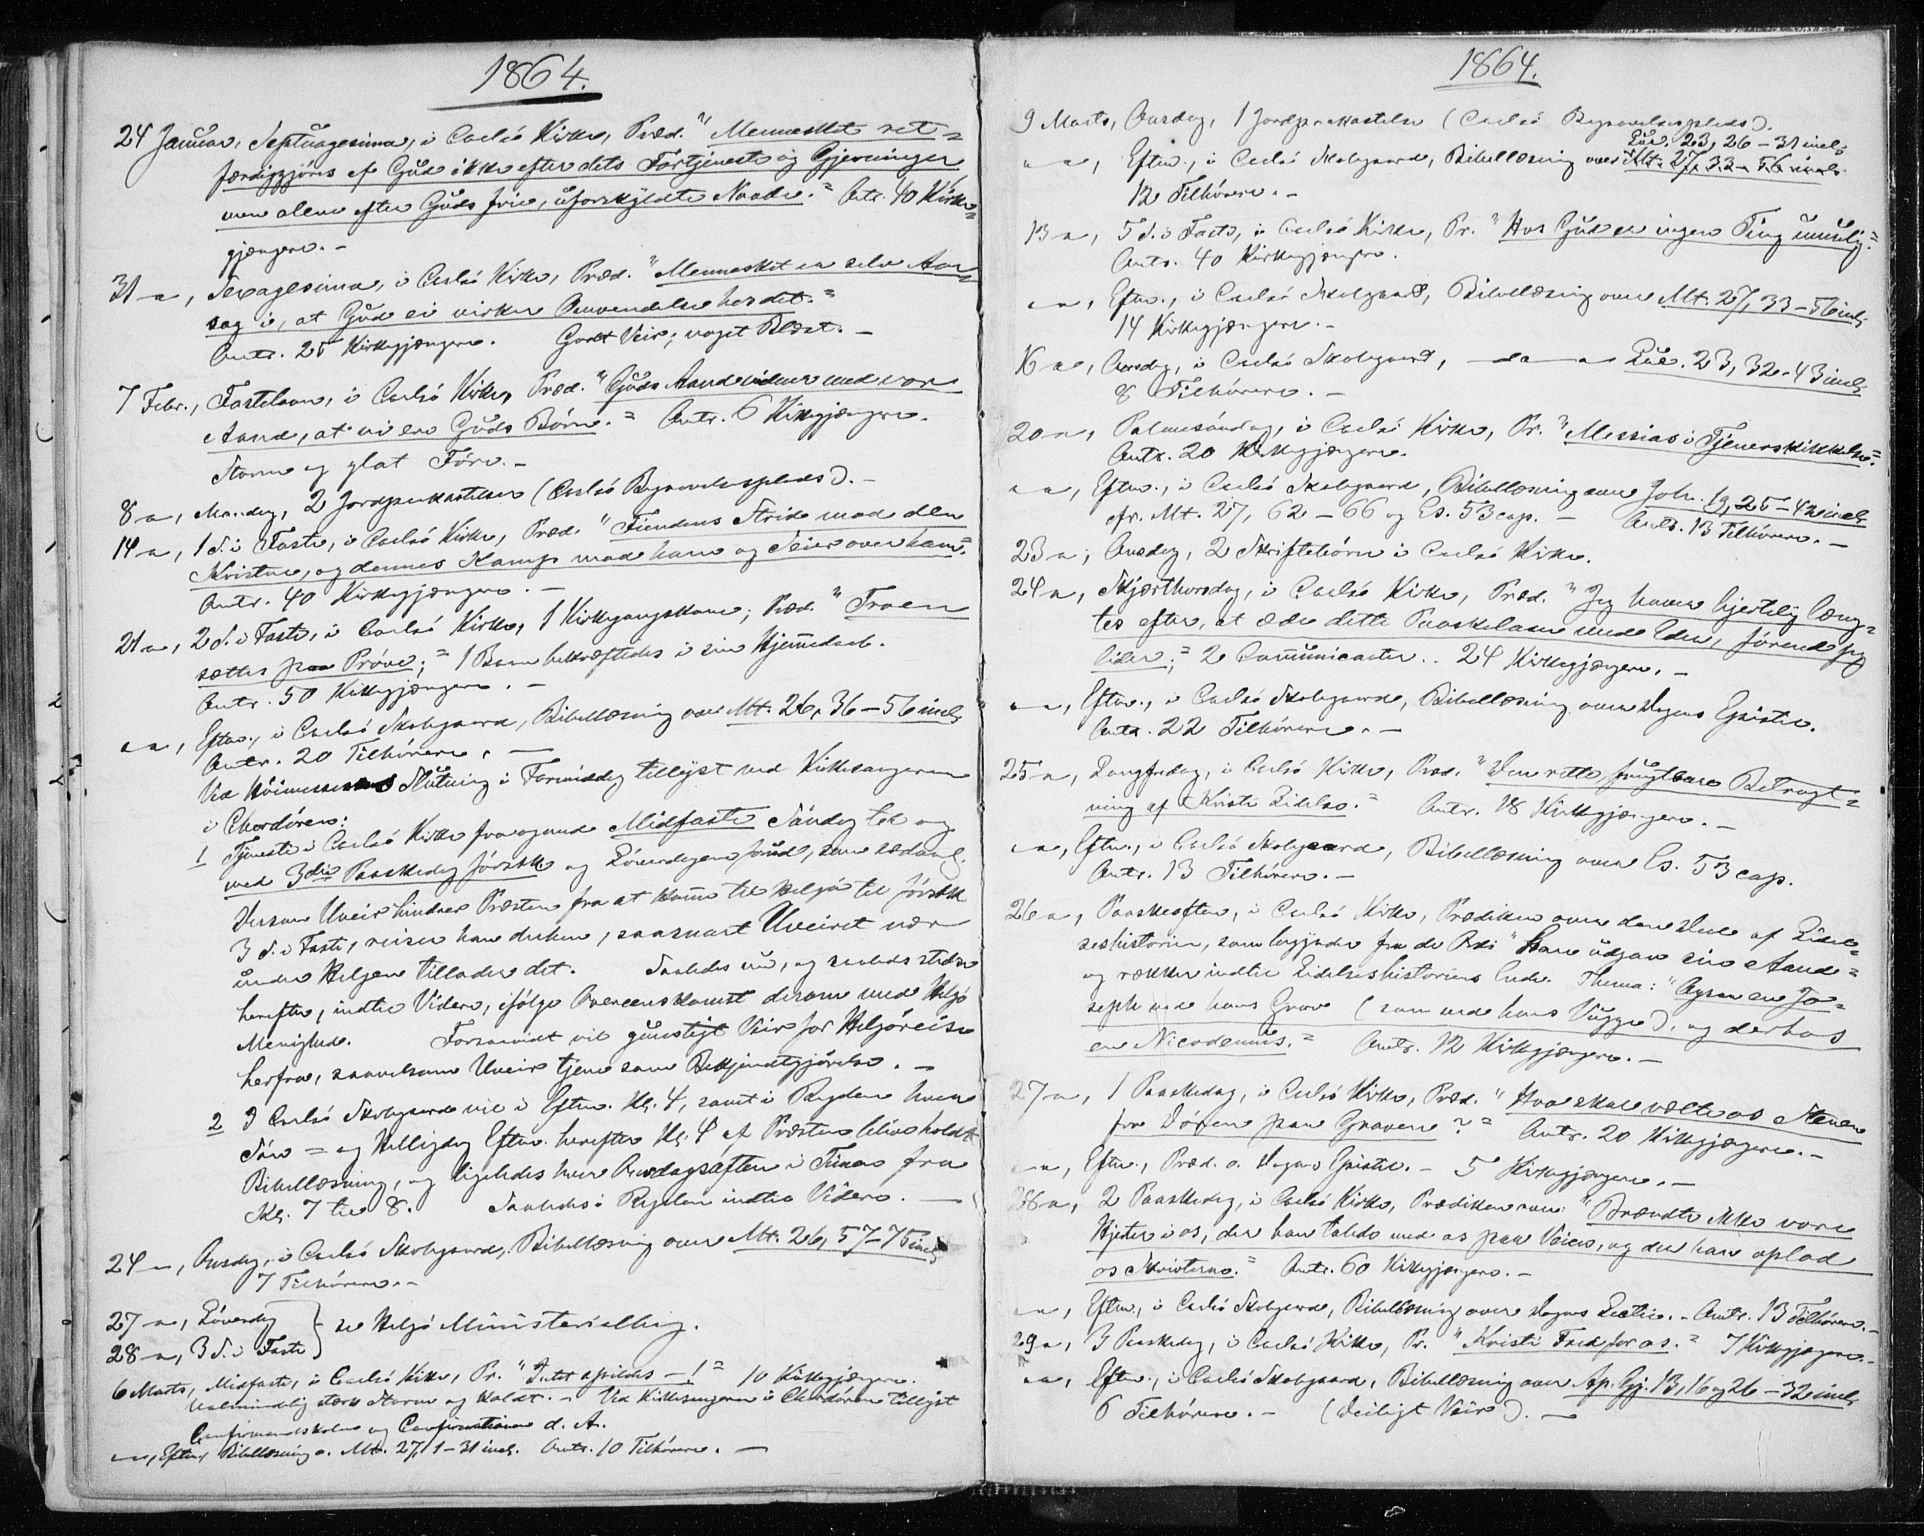 1864.
24 Januar, Septuagesima, i Carlsö Kirke, Præd. "Mennesket ret-
færdiggjöres af Gud ikke efter dets Fortjeneste og Gjerninger
men alene efter Guds frie, uforskyldte Naade." Antr. 40 Kirke-
gjængere. -
31 -a, Sexagesima, i Carlsö Kirke, Præd. "Mennesket er selv Aar-
sag i, at Gud ei virker Omvendelse hos det."
Antr. 25 Kirkegjængere. Godt Veir; noget Blæst. -
7 Febr., Fastelavn, i Carlsö Kirke, Præd. "Guds Aand vidner med vor
Aand, at vi ere Guds Börn." Antr. 6 Kirkegjængere.
Storm og glat Före. -
8 -a, Mandag, 2 Jordpaakastelser (Carlsö Begravelsesplads). -
14 -a, 1 S. i Faste, i Carlsö Kirke, Præd. "Fiendens Strid mod den
Kristne, og dennes Kamp mod ham og Seier over ham."
Antr. 40 Kirkegjængere. -
21 -a, 2 S. i Faste, i Carlsö Kirke, 1 Kirkegangskone; Præd. "Troen
sættes paa Pröve;" 1 Barn bekræftedes i sin Hjemmedaab.
Antr. 50 Kirkegjængere. -
-a -, Efterm., i Carlsö Skolegaard, Bibellæsning over Mt. 26, 36-56 incl.
Antr. 20 Tilhörere. -
Ved Höimessens Slutning i Formiddag tillyst ved Kirkesangeren
i Chordören:
1 Tjeneste i Carlsö Kirke fra og med Midfaste Söndag til og
med 3die Paaskedag förstk. og Löverdagen forud, som sædvanl.
Dersom Uveir hindrer Præsten fra at komme til Helgö til förstk.
3 S. i Faste, reiser han derhen, saasnart Uveiret nær
under Helgen tillader det. Saaledes nu, og saaledes stedse
herefter, indtil Videre, ifölge Overeenskomst derom med Helgö
Menighed. Forsaavidt vil gunstigt Veir for Helgöreise
herfra, saavelsom Uveir tjene som Bekjendtgjörelse. -
2 I Carlsö Skolegaard vil i Efterm. Kl. 4, samt i Reglen hver
Sön- og Helligdag Efterm. herefter Kl. 4 af Præsten blive holdt
Bibellæsning, og ligeledes hver Onsdagsaften i Timen fra
Kl. 7 til 8. Saaledes i Reglen indtil Videre. -
24 -, Onsdag, i Carlsö Skolegaard, Bibellæsning over Mt. 26, 57-75 incl.
7 Tilhörere. -
27 -a, Löverdag
28 -a, 3 S. i Faste } se Helgö Ministerialbog.
6 Marts, Midfaste, i Carlsö Kirke, Pr. "Intet spildes -!" 10 Kirkegjængere.
Ualmindelig stærk Storm og Koldt. - Ved Kirkesangeren i Chordören tillyst
Confirmandskolen og Confirmationen d. A.
-a-, Efterm., Bibellæsning o. Mt. 27, 1-31 incl. Antr. 10 Tilhörere. -
1864.
9 Marts, Onsdag, 1 Jordpaakastelse (Carlsö Begravelsesplads).
Luc. 23, 26-31 incl.
-a -, Efterm., i Carlsö Skolegaard, Bibellæsning over Mt. 27, 33-56 incl.
12 Tilhörere. -
13 -a, 5 S. i Faste, i Carlsö Kirke, Pr. "Hos Gud er ingen Ting umulig."
Antr. 40 Kirkegjængere.
-a -, Efterm., i Carlsö Skolegaard, Bibellæsning over Mt. 27, 33-56 incl.
14 Kirkegjængere. -
16 -a, Onsdag, i Carlsö Skolegaard, -a- -a Luc. 23, 32-43 incl.
8 Tilhörere. -
20 -a, Palmesöndag, i Carlsö Kirke, Pr. "Messias i Tjenerskikkelse."
Antr. 20 Kirkegjængere.
-a -, Efterm., i Carlsö Skolegaard, Bibellæsning over Joh. 19, 25-42 incl.
cfr. Mt. 27, 62-66 og Es. 53 cap. - Antr. 13 Tilhörere. -
23 -a, Onsdag, 2 Skriftebörn i Carlsö Kirke.
24 -a, Skjærthorsdag, i Carlsö Kirke, Præd. "Jeg haver hjertelig læng-
tes efter, at æde dette Paaskelam med Eder, förend jeg
lider;" 2 Communicanter. 24 Kirkegjængere. -
-a -, Efterm., i Carlsö Skolegaard, Bibellæsning over Dagens Epistel.
Antr. 22 Tilhörere. -
25 -a, Langfredag, i Carlsö Kirke, Præd. "Den rette frugtbare Betragt-
ning af Kristi Lidelse." Antr. 18 Kirkegjængere. -
-a -, Efterm., i Carlsö Skolegaard, Bibellæsning over Es. 53 cap.
Antr. 13 Tilhörere. -
26 -a, Paaskeaften, i Carlsö Kirke, Prædiken over den Deel af Lidel-
seshistorien, som begynder fra de Ord: "Han udgav sin Aand"
og rækker indtil Lidelseshistoriens Ende. Thema: "Ogsaa en Jo-
seph ved hans Grav (som ved hans Vugge), og derhos
en Nicodemus." Antr. 12 Kirkegjængere. -
27 -a, 1 Paaskedag, i Carlsö Kirke, Præd. "Hvo skal vælte os Stenen
fra Dören paa Graven?" Antr. 20 Kirkegjængere. -
-a -, Efterm., Præd. o. Dagens Epistel. - 5 Kirkegjængere. -
28 -a, 2 Paaskedag, i Carlsö Kirke, Prædiken over: "Brændte ikke vore
Hjerter i os, der han talede med os paa Veien, og der han oplod
os Skrifterne." Antr. 60 Kirkegjængere. -
-a -, Efterm., i Carlsö Skolegaard, Bibellæsning over Dagens Lectie. - Antr. 13 Tilhörere. -
29 -a, 3 Paaskedag, i Carlsö Kirke, Pr. "Kristi Fred for os." 7 Kirkegjængere. -
-a -, Efterm., i Carlsö Skolegaard, Bibellæsning over Ap. Gj. 13, 16 og 26-32 incl.
6 Tilhörere. - (Deiligt Veir). -